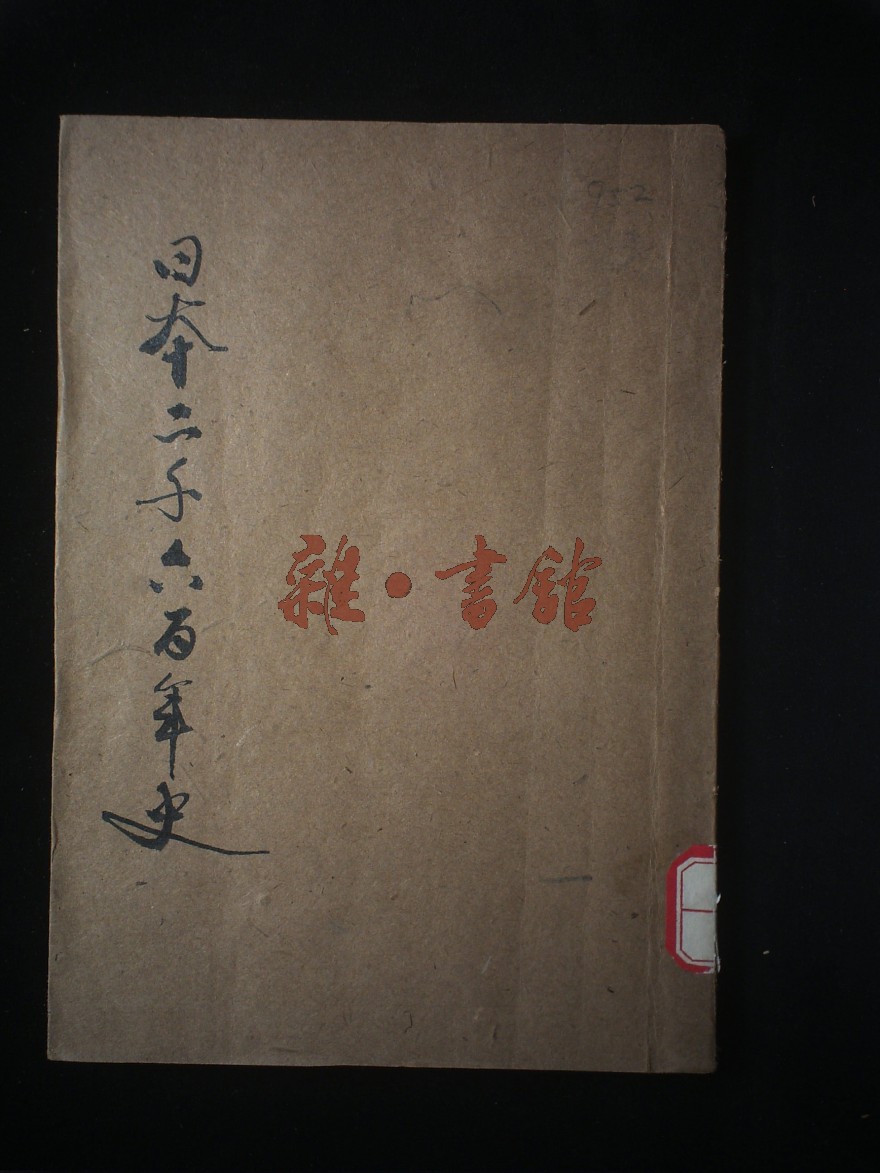 日本二千六百年史
雜·書館
952